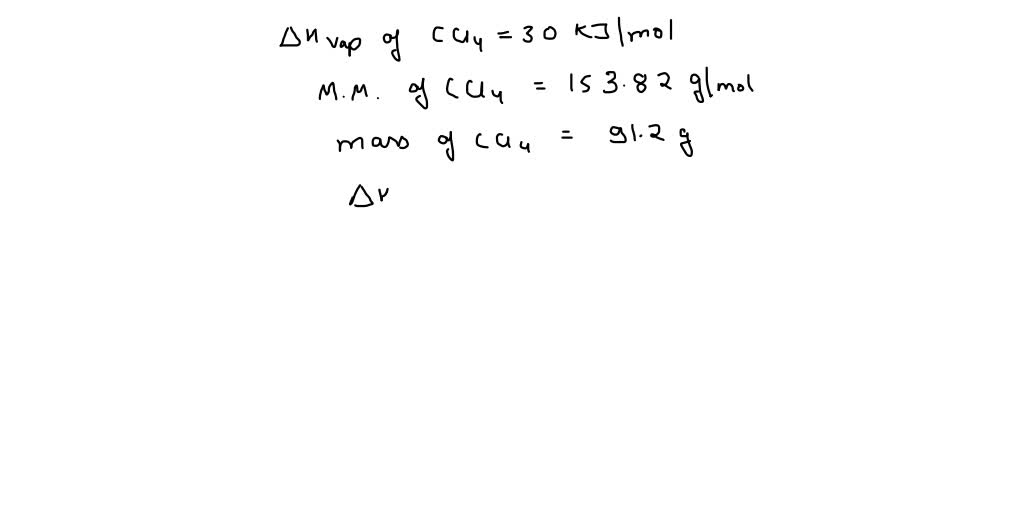 ΔH vap of CCl4 = 30 KJ/mol
M.M. of CCl4 = 153.82 g/mol
mass of CCl4 = 91.2 g
ΔH